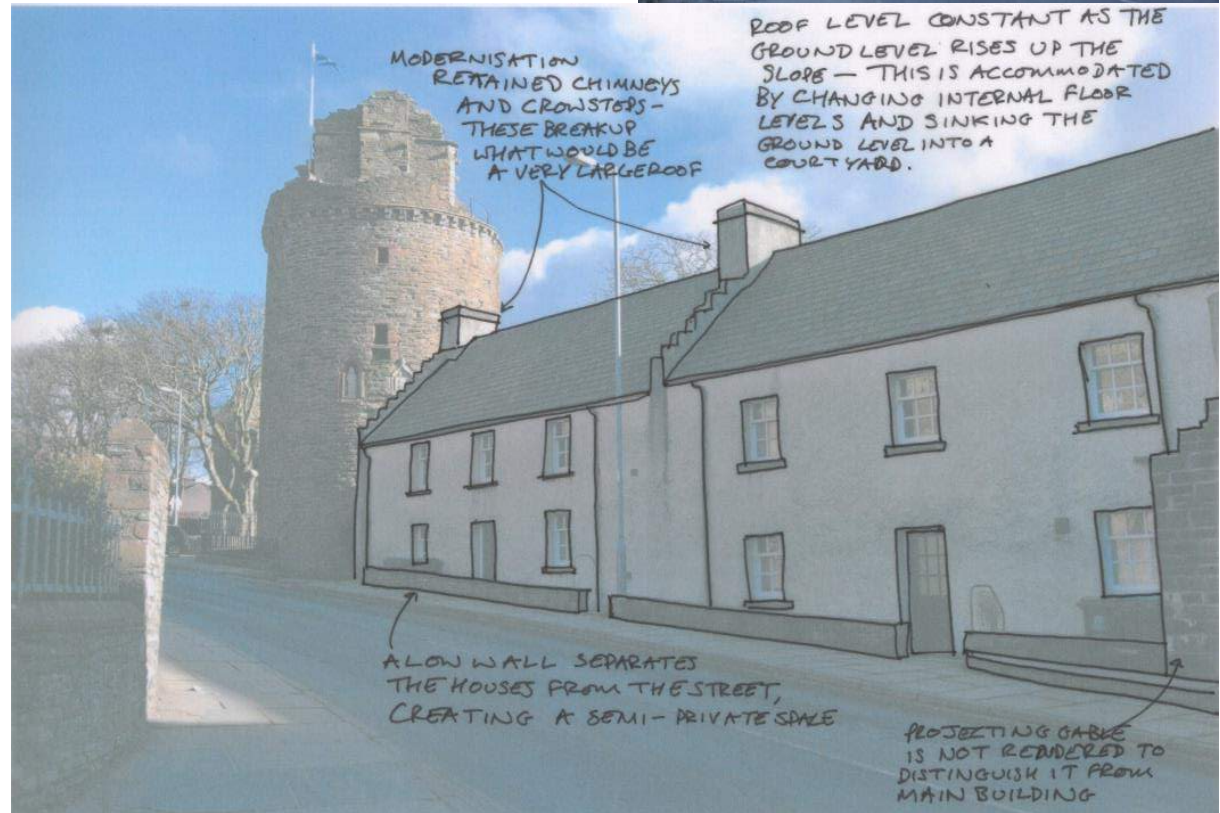 MODERNISATION
RETAINED CHIMNEYS
AND CROWSTEPS –
THESE BREAKUP
WHAT WOULD BE
A VERY LARGE ROOF
ROOF LEVEL CONSTANT AS THE
GROUND LEVEL RISES UP THE
SLOPE – THIS IS ACCOMMODATED
BY CHANGING INTERNAL FLOOR
LEVELS AND SINKING THE
GROUND LEVEL INTO A
COURTYARD.
A LOW WALL SEPARATES
THE HOUSES FROM THE STREET,
CREATING A SEMI-PRIVATE SPACE
PROJECTING GABLE
IS NOT RENDERED TO
DISTINGUISH IT FROM
MAIN BUILDING